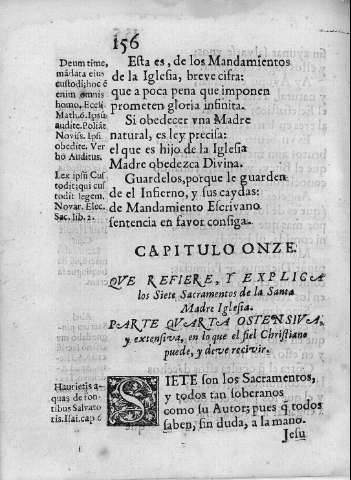 156
Esta es, de los Mandamientos
de la Iglesia, breve cifra:
que a poca pena que imponen
prometen gloria infinita.
Si obedecer vna Madre
natural, es ley precisa:
el que es hijo de la Iglesia
Madre obedezca Divina.
Guardelos, porque le guarden
de el Infierno, y sus caydas:
de Mandamiento Escrivano
sentencia en favor consiga.
Deum time,
mãdata eius
custodi; hoc é
enim omnis
homo. Eccli.
Math. 6. Ipsũ
audite. Poliãt
Noviss. Ipsi
obedite. Ver
bo Auditus.
Lex ipsũ Cus
todit; qui cus
todit legem.
Novar. Elec.
Sac. lib. 2.
CAPITULO ONZE.
QVE REFIERE, Y EXPLICA
los Siete Sacramentos de la Santa
Madre Iglesia.
PARTE QVARTA OSTENSIVA,
y extensiva, en lo que el fiel Christiano
puede, y deve recivir.
Haurietis a-
quas de fon-
tibus Salvato
ris. Isai. cap. 6
SIETE son los Sacramentos,
y todos tan soberanos
como su Autor; pues q̃ todos
saben, sin duda, a la mano.
Jesu